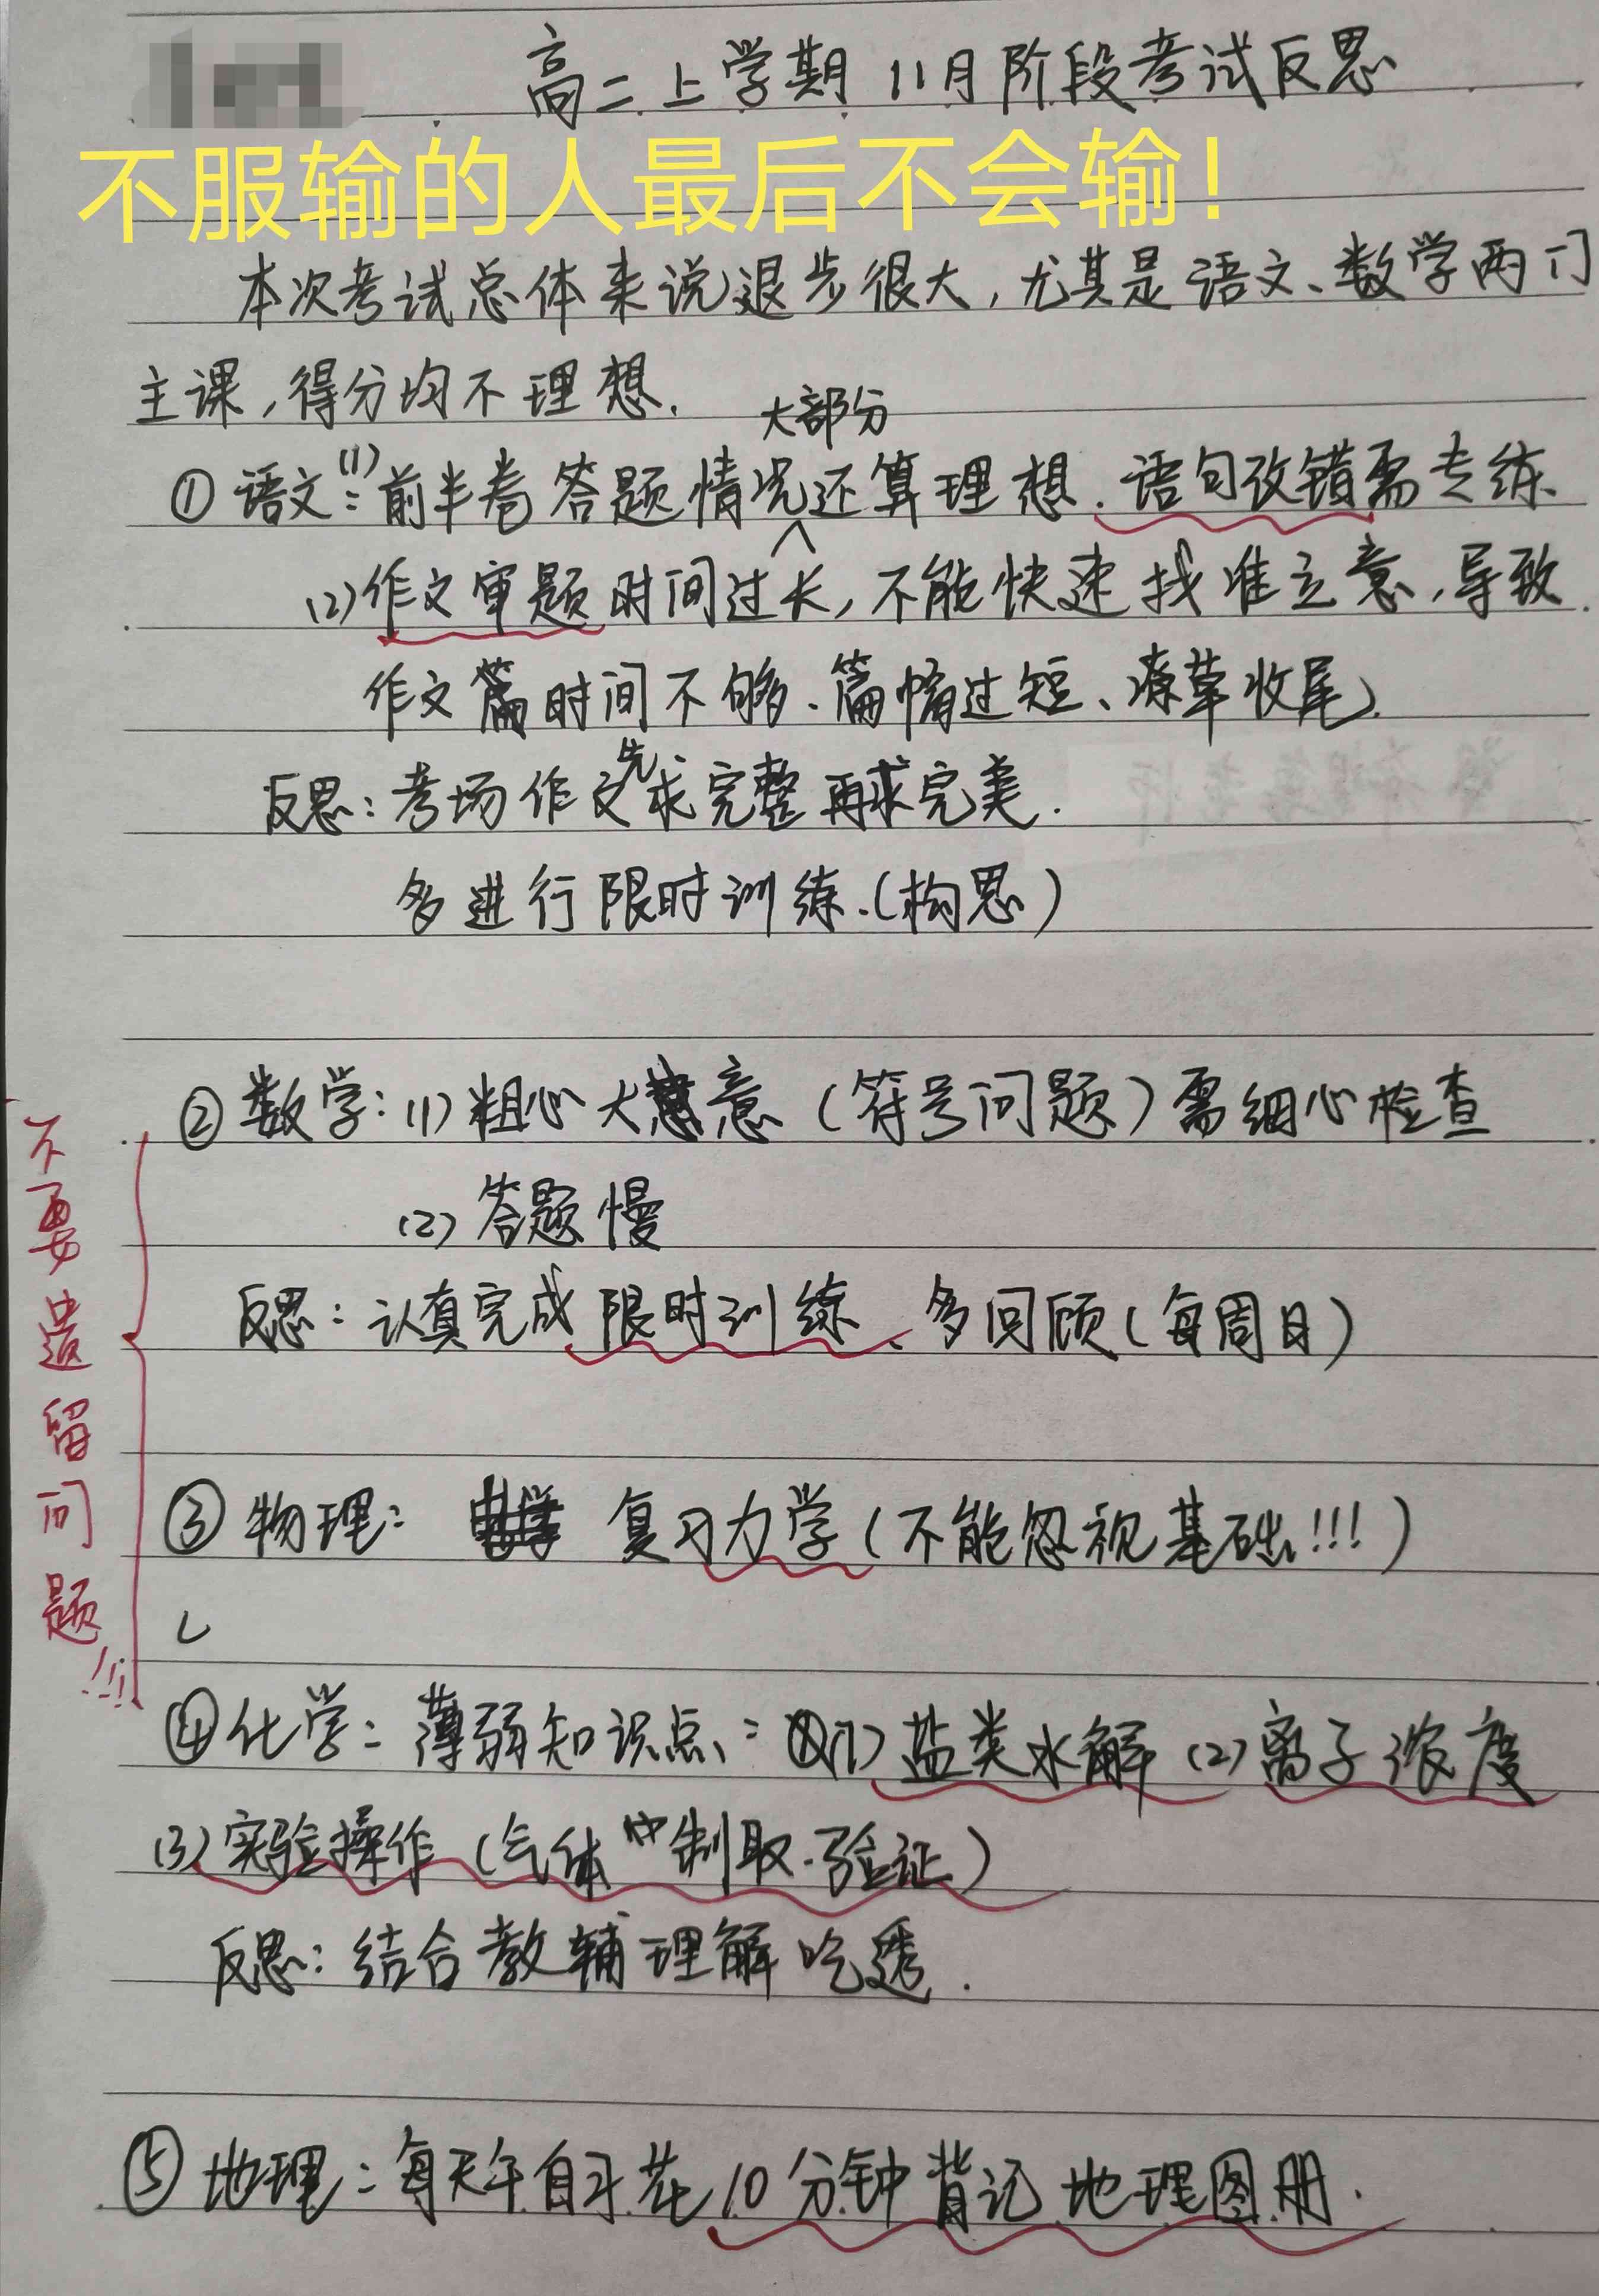 高二上学期 11月阶段考试反思
不服输的人最后不会输！
本次考试总体来说退步很大，尤其是语文、数学两门
主课，得分均不理想.
大部分
①语文：(1)前半卷答题情况还算理想.语句改错需专练.
(2)作文审题时间过长，不能快速找准立意，导致
作文时间不够、篇幅过短、潦草收尾.
反思：考场作文先求完整再求完美.
多进行限时训练.(构思)
②数学：(1)粗心大意（符号问题）需细心检查
(2)答题慢
反思：认真完成限时训练、多回顾(每周日)
③物理：复习力学(不能忽视基础!!!)
④化学：薄弱知识点：(1)盐类水解 (2)离子浓度
(3)实验操作(气体制取.验证)
反思：结合教辅理解吃透.
⑤地理：每天午自习花10分钟背记地理图册.
不要遗留问题!!!